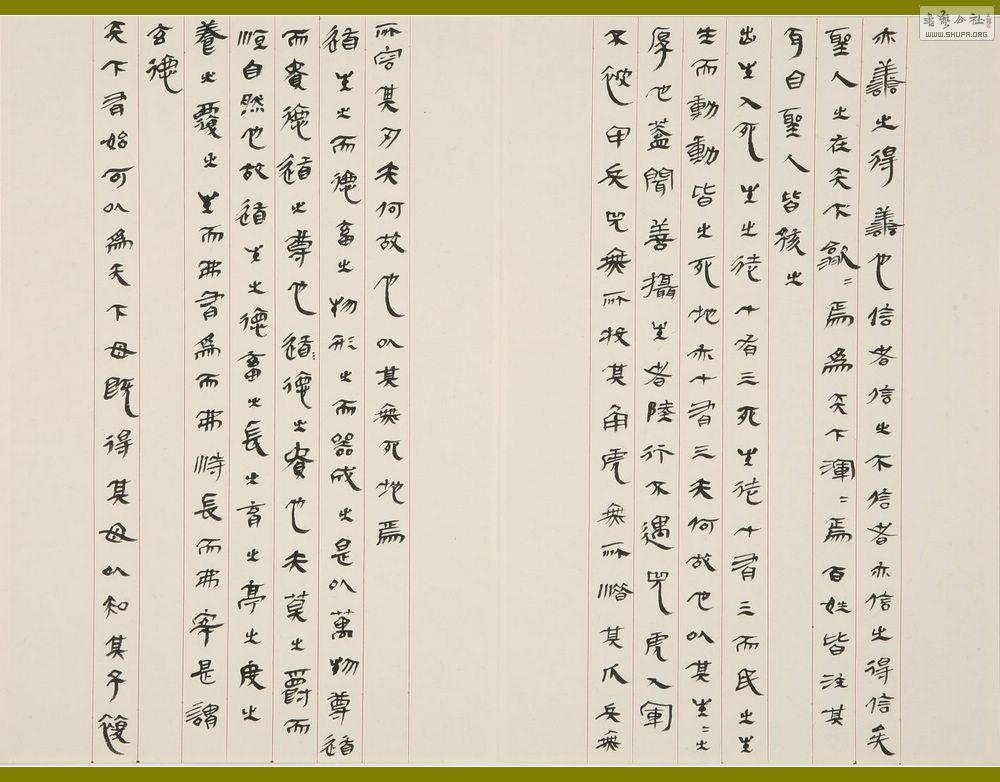 亦善之得善也信者信之不信者亦信之得信矣
聖人之在天下歙〓焉為天下渾〓焉百姓皆注其
耳目聖人皆孩之
出生入死生之徒十有三死生徒十有三而民之生
生而動動皆之死地亦十有三夫何故也以其生〓之
厚也蓋聞善攝生者陸行不遇兕虎入軍
不被甲兵兕無所投其角虎無所措其爪兵無
所容其刃夫何故也以其無死地焉
道生之而德畜之物形之而器成之是以萬物尊道
而貴德道之尊也道德之貴也夫莫之爵而
恒自然也故道生之德畜之長之育之亭之度之
養之覆之生而弗有為而弗恃長而弗宰是謂
玄德
天下有始可以為天下母既得其母以知其子復
書藝公社
WWW.SHUFA.ORG